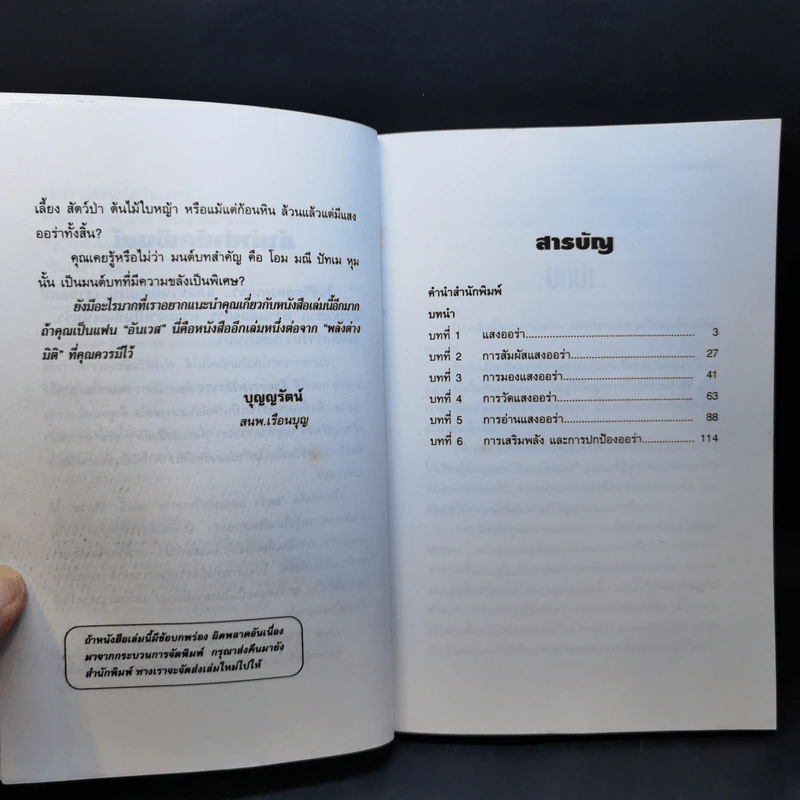 เลี้ยง สัตว์ป่า ต้นไม้ใบหญ้า หรือแม้แต่ก้อนหิน ล้วนแล้วแต่มีแสง
ออร่าทั้งสิ้น?
คุณเคยรู้หรือไม่ว่า มนต์บทสำคัญ คือ โอม มณี ปัทเม หุม
นั้น เป็นมนต์บทที่มีความขลังเป็นพิเศษ?
ยังมีอะไรมากที่เราอยากแนะนำคุณเกี่ยวกับหนังสือเล่มนี้อีกมาก
ถ้าคุณเป็นแฟน "อันเวส" นี่คือหนังสืออีกเล่มหนึ่งต่อจาก "พลังต่าง
มิติ" ที่คุณควรมีไว้
บุญญรัตน์
สนพ.เรือนบุญ
ถ้าหนังสือเล่มนี้มีข้อบกพร่อง ผิดพลาดอันเนื่อง
มาจากกระบวนการจัดพิมพ์ กรุณาส่งคืนมายัง
สำนักพิมพ์ ทางเราจะจัดส่งเล่มใหม่ไปให้
สารบัญ
คำนำสำนักพิมพ์
บทนำ
บทที่ 1 แสงออร่า.......................................... 3
บทที่ 2 การสัมผัสแสงออร่า............................ 27
บทที่ 3 การมองแสงออร่า.............................. 41
บทที่ 4 การวัดแสงออร่า................................ 63
บทที่ 5 การอ่านแสงออร่า.............................. 88
บทที่ 6 การเสริมพลัง และการปกป้องออร่า.................. 114